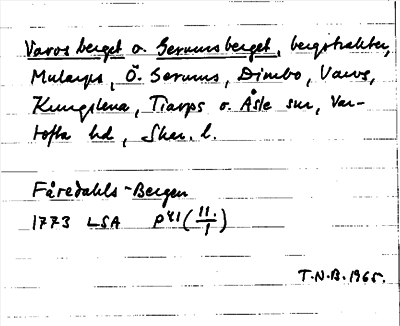 Varvs berget o. Gerumsberget, bergstrakter,
Mularps, Ö. Gerums, Dimbo, Varvs,
Kungslena, Tiarps o. Åsle snr, Var-
tofta hd, Skar. l.
Fåredahls-Bergen
1773 LSA P41 (11./1)
T.N.B. 1965.